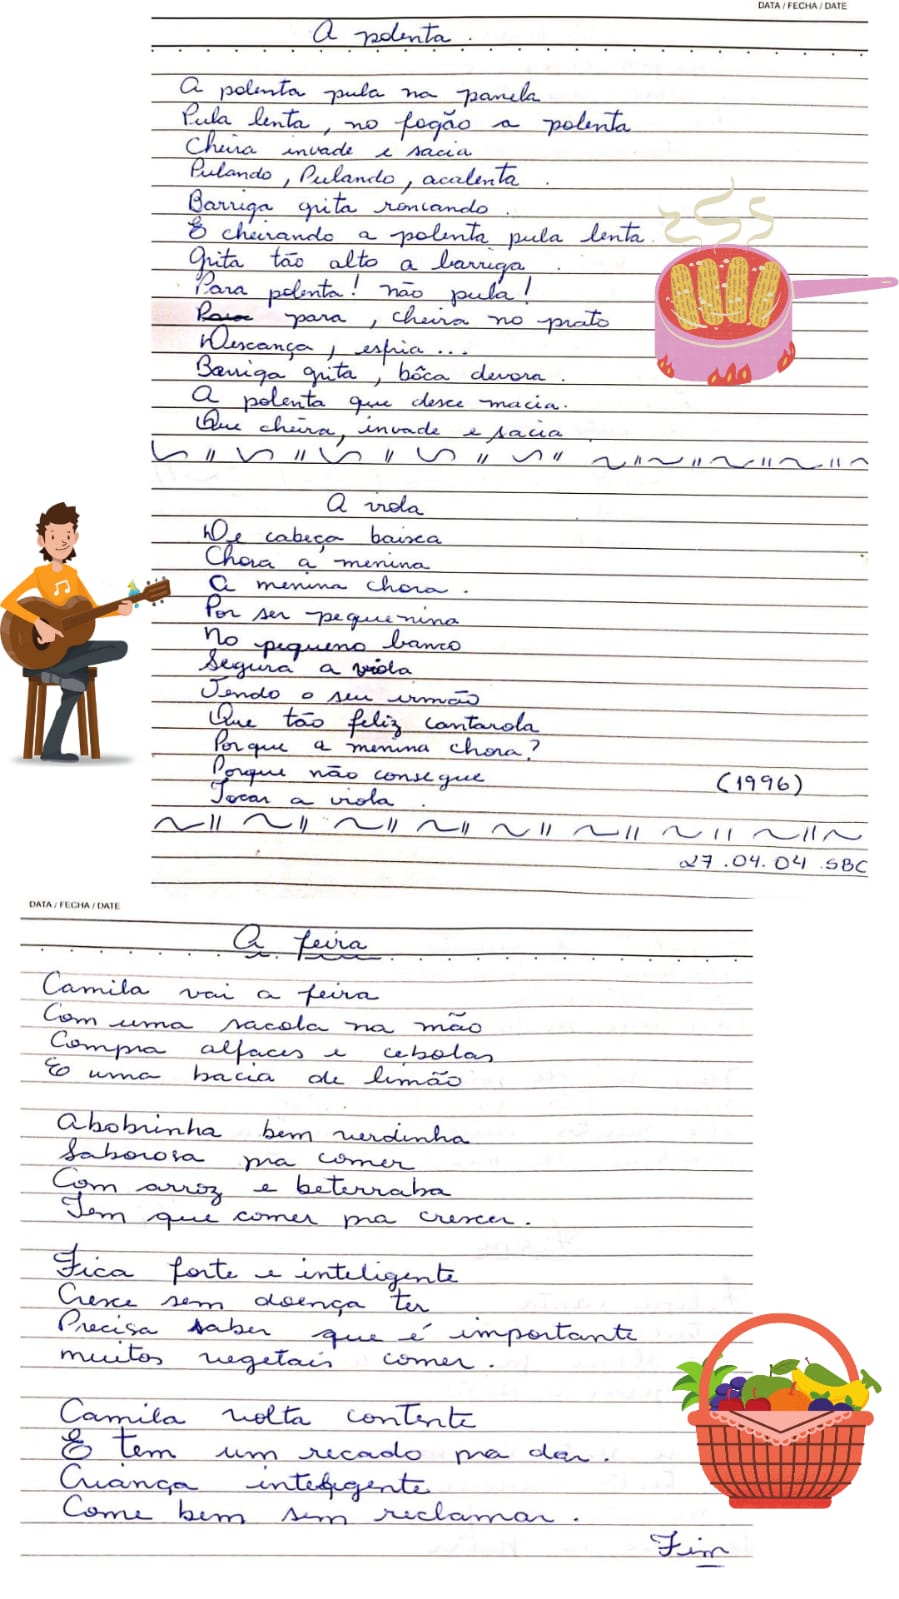 DATA / FECHA / DATE
A polenta.
A polenta pula na panela
Pula lenta, no fogão a polenta
Cheira invade e sacia
Pulando, Pulando, acalenta.
Barriga grita roncando.
E cheirando a polenta pula lenta.
Grita tão alto a barriga.
Para polenta! não pula!
para, cheira no prato
Descança, esfria...
Barriga grita, bôca devora.
A polenta que desce macia.
Que cheira, invade e sacia
A viola
De cabeça baixa
Chora a menina
A menina chora.
Por ser pequenina
No pequeno banco
Segura a viola
Tendo o seu irmão
Que tão feliz cantarola
Porque a menina chora?
Porque não consegue
(1996)
Tocar a viola.
27.04.04 SBC
DATA / FECHA / DATE
A feira
Camila vai a feira
Com uma sacola na mão
Compra alfaces e cebolas
E uma bacia de limão
Abobrinha bem verdinha
Saborosa pra comer
Com arroz e beterraba
Tem que comer pra crescer.
Fica forte e inteligente
Cresce sem doença ter
Precisa saber que é importante
muitos vegetais comer.
Camila volta contente
E tem um recado pra dar.
Criança inteligente
Come bem sem reclamar.
Fim